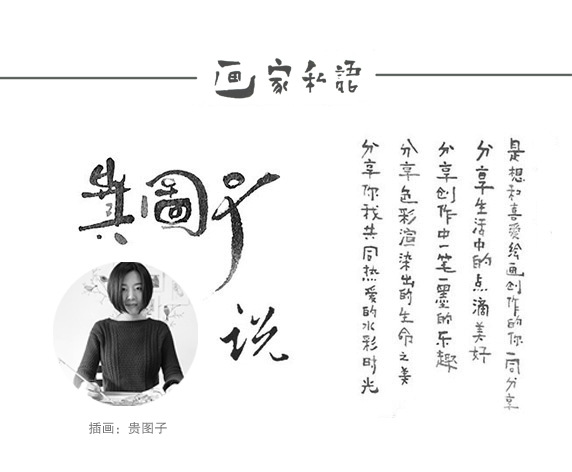 画家私語
貴圖子
说
是想和喜愛绘画创作的你一同分享
分享生活中的点滴美好
分享创作中一笔一墨的乐趣
分享色彩渲染出的生命之美
分享你我共同热爱的水彩时光
插画：贵图子